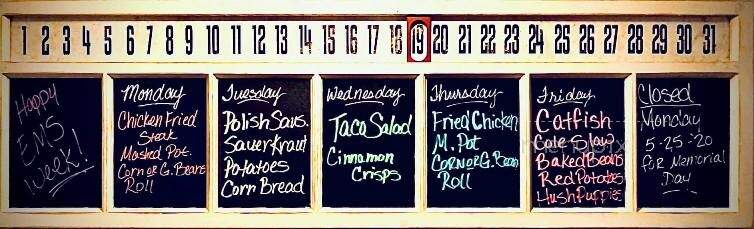 1 2 3 4 5 6 7 8 9 10 11 12 13 14 15 16 17 18 19 20 21 22 23 24 25 26 27 28 29 30 31
Happy
EMS
Week!
Monday
Chicken Fried
Steak
Mashed Pot.
Corn or G. Beans
Roll
Tuesday
Polish Saus.
Sauerkraut
Potatoes
Corn Bread
Wednesday
Taco Salad
Cinnamon
Crisps
Thursday
Fried Chicken
M. Pot
Corn or G. Bean
Roll
Friday
Catfish
Cole Slaw
Baked Beans
Red Potatoes
Hush Puppies
Closed
Monday
5-25-20
for Memorial
Day